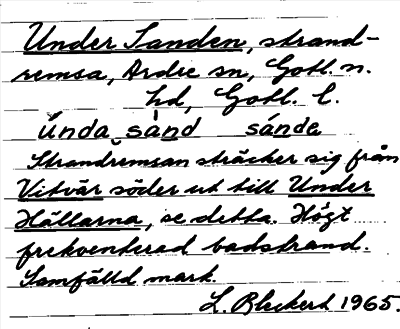 Under Sanden, strand-
remsa, Ardre sn, Gotl. n.
hd, Gotl. l.
únda sànd sánda
Strandremsan sträcker sig från
Vitvär söder ut till Under
Hällarna, se detta. Högt
frekventerad badstrand.
Samfälld mark.
L. Bleckert 1965.